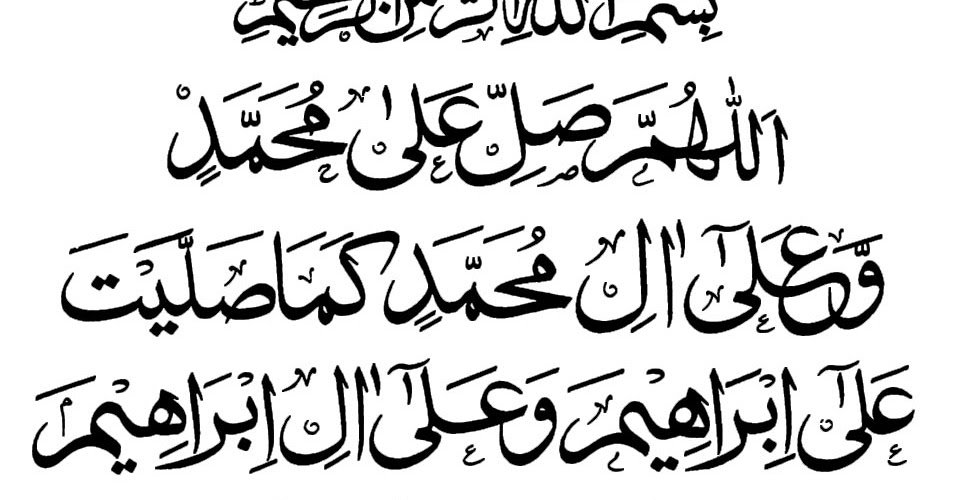 بِسْمِ اللهِ الرَّحْمٰنِ الرَّحِيْمِ
اَللّٰهُمَّ صَلِّ عَلٰى مُحَمَّدٍ
وَّعَلٰٓى اٰلِ مُحَمَّدٍ كَمَا صَلَّيْتَ
عَلٰٓى اِبْرَاهِيْمَ وَعَلٰٓى اٰلِ اِبْرَاهِيْمَ